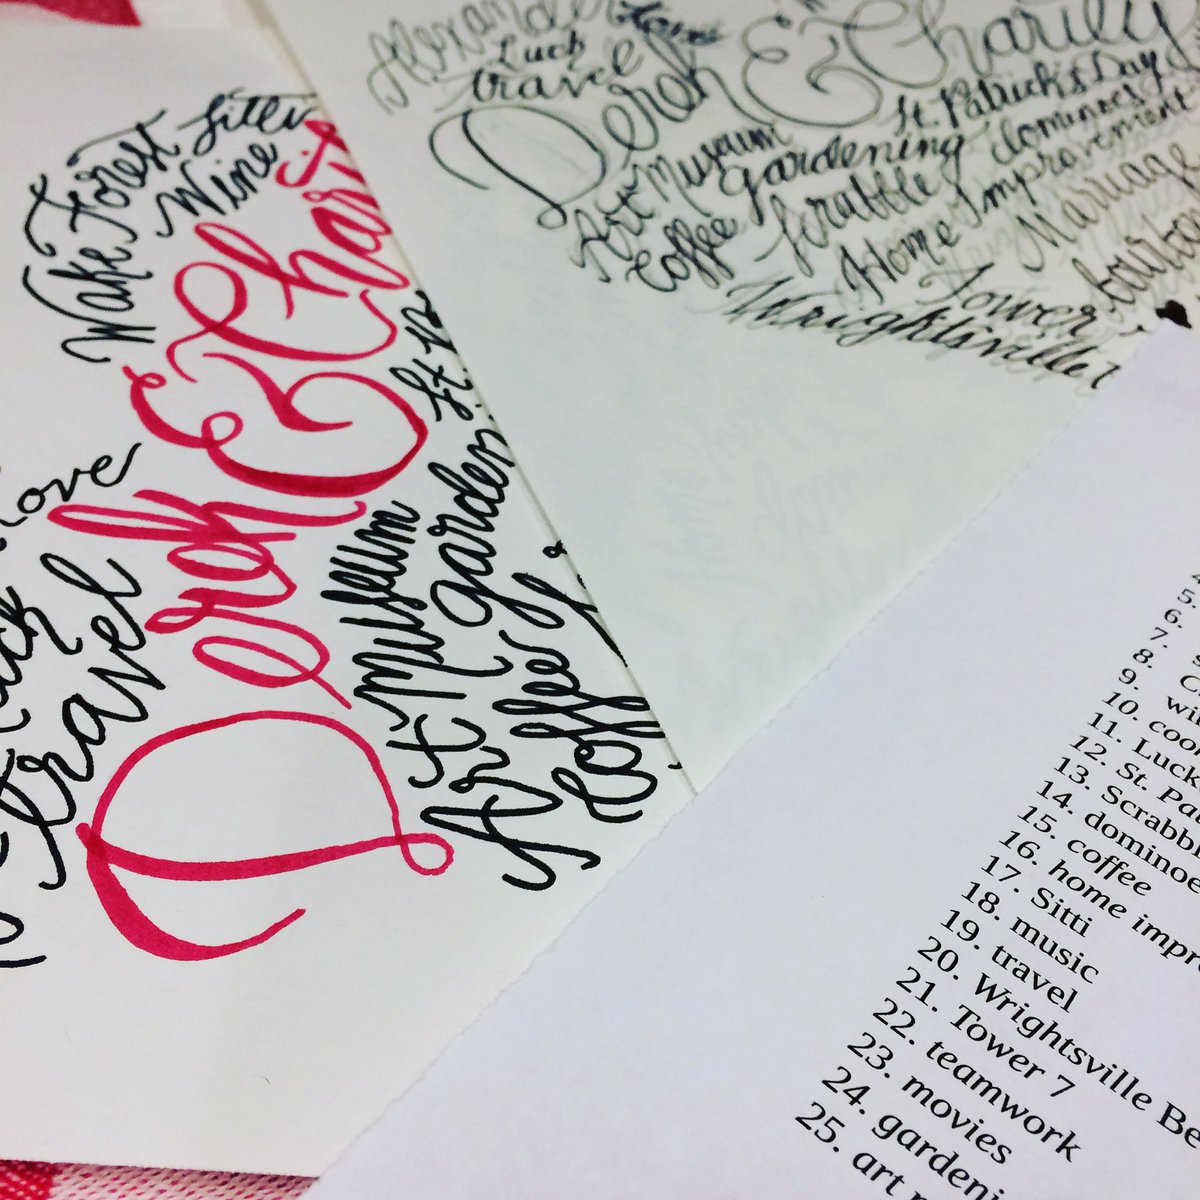 Wake Forest
Wine
Derek & Charit
Love
Travel
Museum
Art
garden
Coffee
Alexander
Luck
travel
Derek & Charity
St. Patrick's Day
Museum
Art
gardening
Dominoes
Coffee
Scrabble
Home Improvement
Marriage
Tower
Wrightsville
5.
6.
7.
8.
9. wi
10. coo
11. Luck
12. St. Pa
13. Scrabbl
14. dominoe
15. coffee
16. home impro
17. Sitti
18. music
19. travel
20. Wrightsville Be
21. Tower 7
22. teamwork
23. movies
24. gardeni
25. art